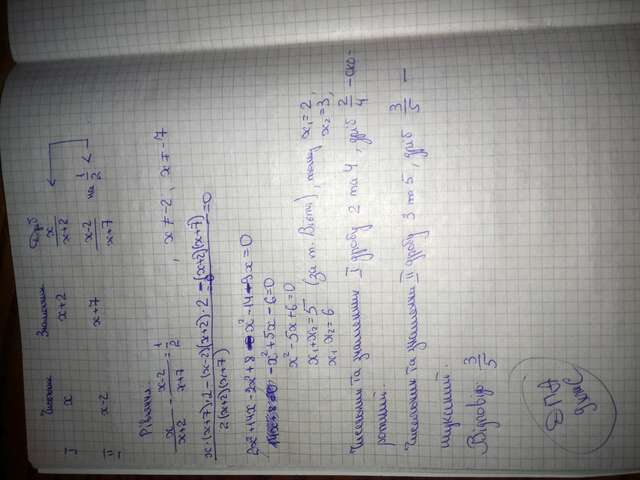 Чисельник Знаменник Дріб
I x x+2 x/(x+2)
II x-2 x+7 (x-2)/(x+7) на 1/2 <
Рівняння:
x/(x+2) - (x-2)/(x+7) = 1/2, x≠-2, x≠-7
(x·(x+7)·2-(x-2)(x+2)·2-(x+2)(x+7))/(2(x+2)(x+7))=0
2x²+14x-2x²+8-x²-14-9x=0
-x²+5x-6=0
x²-5x+6=0
x₁+x₂=5 (за т. Вієта), тому x₁=2,
x₁·x₂=6 x₂=3,
Чисельник та знаменник I дробу 2 та 4, дріб 2/4 - ско-
ротний.
Чисельник та знаменник II дробу 3 та 5, дріб 3/5 -
шуканий.
Відповідь: 3/5